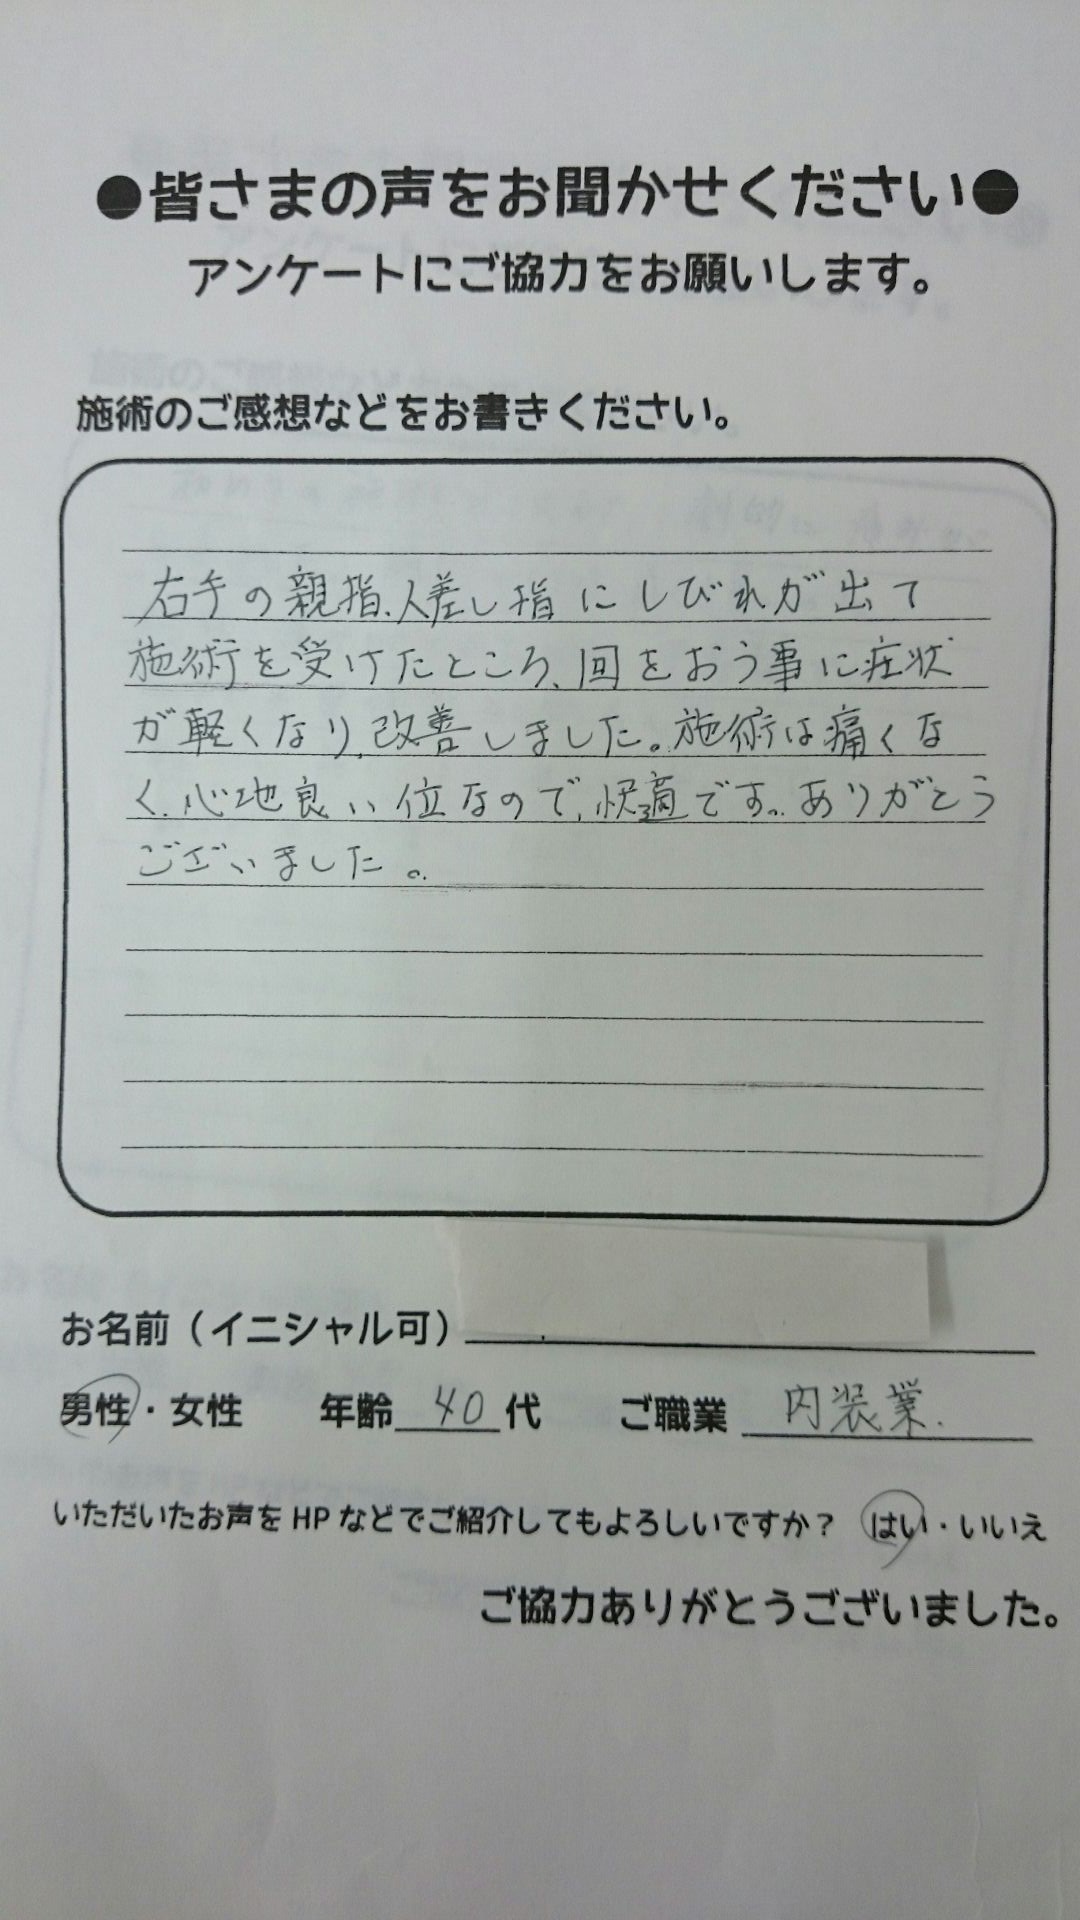 ●皆さまの声をお聞かせください●
アンケートにご協力をお願いします。
施術のご感想などをお書きください。
右手の親指、人差し指にしびれが出て
施術を受けたところ、回をおう事に症状
が軽くなり、改善しました。施術は痛くな
く、心地良い位なので、快適です。ありがとう
ございました。
お名前（イニシャル可）
男性・女性　年齢 40 代　ご職業 内装業.
いただいたお声を HP などでご紹介してもよろしいですか？　はい・いいえ
ご協力ありがとうございました。